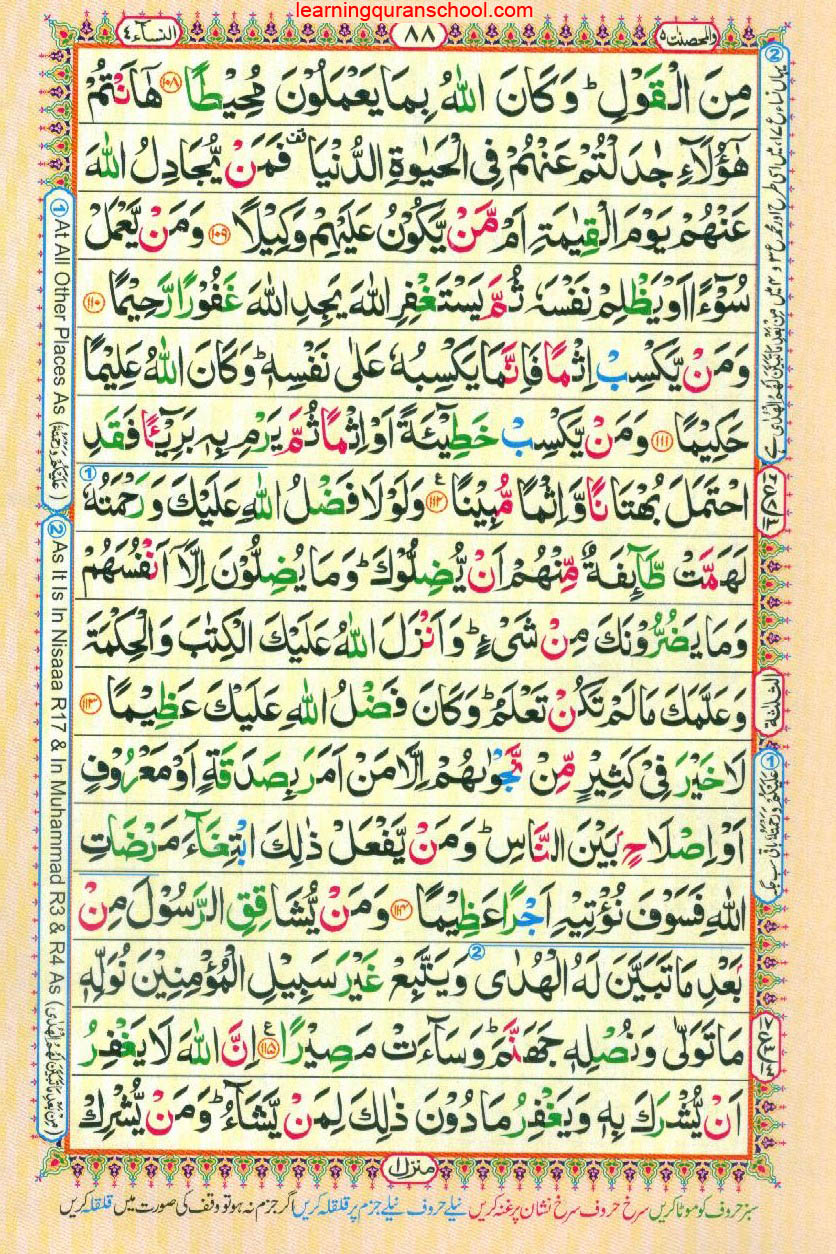 learningquranschool.com
والمحصنت ۵
۸۸
النسآء ٤
مِنَ الْقَوْلِ ؕ وَكَانَ اللّٰهُ بِمَا يَعْمَلُوْنَ مُحِيْطًا ﴿۱۰۸﴾ هٰۤاَنْتُمْ
هٰۤؤُلَآءِ جٰدَلْتُمْ عَنْهُمْ فِى الْحَيٰوةِ الدُّنْيَا ۟ فَمَنْ يُّجَادِلُ اللّٰهَ
عَنْهُمْ يَوْمَ الْقِيٰمَةِ اَمْ مَّنْ يَّكُوْنُ عَلَيْهِمْ وَكِيْلًا ﴿۱۰۹﴾ وَمَنْ يَّعْمَلْ
سُوْٓءًا اَوْ يَظْلِمْ نَفْسَهٗ ثُمَّ يَسْتَغْفِرِ اللّٰهَ يَجِدِ اللّٰهَ غَفُوْرًا رَّحِيْمًا ﴿۱۱۰﴾
وَمَنْ يَّكْسِبْ اِثْمًا فَاِنَّمَا يَكْسِبُهٗ عَلٰى نَفْسِهٖ ؕ وَكَانَ اللّٰهُ عَلِيْمًا
حَكِيْمًا ﴿۱۱۱﴾ وَمَنْ يَّكْسِبْ خَطِيْٓئَةً اَوْ اِثْمًا ثُمَّ يَرْمِ بِهٖ بَرِيْٓئًا فَقَدِ
احْتَمَلَ بُهْتَانًا وَّاِثْمًا مُّبِيْنًا ﴿۱۱۲﴾ وَلَوْلَا فَضْلُ اللّٰهِ عَلَيْكَ وَرَحْمَتُهٗ ①
لَهَمَّتْ طَّآئِفَةٌ مِّنْهُمْ اَنْ يُّضِلُّوْكَ ؕ وَمَا يُضِلُّوْنَ اِلَّاۤ اَنْفُسَهُمْ
وَمَا يَضُرُّوْنَكَ مِنْ شَىْءٍ ؕ وَاَنْزَلَ اللّٰهُ عَلَيْكَ الْكِتٰبَ وَالْحِكْمَةَ
وَعَلَّمَكَ مَا لَمْ تَكُنْ تَعْلَمُ ؕ وَكَانَ فَضْلُ اللّٰهِ عَلَيْكَ عَظِيْمًا ﴿۱۱۳﴾
لَا خَيْرَ فِىْ كَثِيْرٍ مِّنْ نَّجْوٰىهُمْ اِلَّا مَنْ اَمَرَ بِصَدَقَةٍ اَوْ مَعْرُوْفٍ
اَوْ اِصْلَاحٍۭ بَيْنَ النَّاسِ ؕ وَمَنْ يَّفْعَلْ ذٰلِكَ ابْتِغَآءَ مَرْضَاتِ
اللّٰهِ فَسَوْفَ نُؤْتِيْهِ اَجْرًا عَظِيْمًا ﴿۱۱۴﴾ وَمَنْ يُّشَاقِقِ الرَّسُوْلَ مِنْۢ
بَعْدِ مَا تَبَيَّنَ لَهُ الْهُدٰى ② وَيَتَّبِعْ غَيْرَ سَبِيْلِ الْمُؤْمِنِيْنَ نُوَلِّهٖ
مَا تَوَلّٰى وَنُصْلِهٖ جَهَنَّمَ ؕ وَسَآءَتْ مَصِيْرًا ﴿۱۱۵﴾ اِنَّ اللّٰهَ لَا يَغْفِرُ
اَنْ يُّشْرَكَ بِهٖ وَيَغْفِرُ مَا دُوْنَ ذٰلِكَ لِمَنْ يَّشَآءُ ؕ وَمَنْ يُّشْرِكْ
منزل ۱
سبز حروف کو موٹا کریں سرخ حروف سرخ نشان پر غنہ کریں نیلے حروف نیلے جزم پر قلقلہ کریں اگر جزم نہ ہو تو وقف کی صورت میں قلقلہ کریں
① At All Other Places As (عَلَيْكُمْ وَرَحْمَتُهٗ)
② As It Is In Nisaaa R17 & In Muhammad R3 & R4 As (مِنْۢ بَعْدِ مَا تَبَيَّنَ لَهُمُ الْهُدٰى)
الثلثة